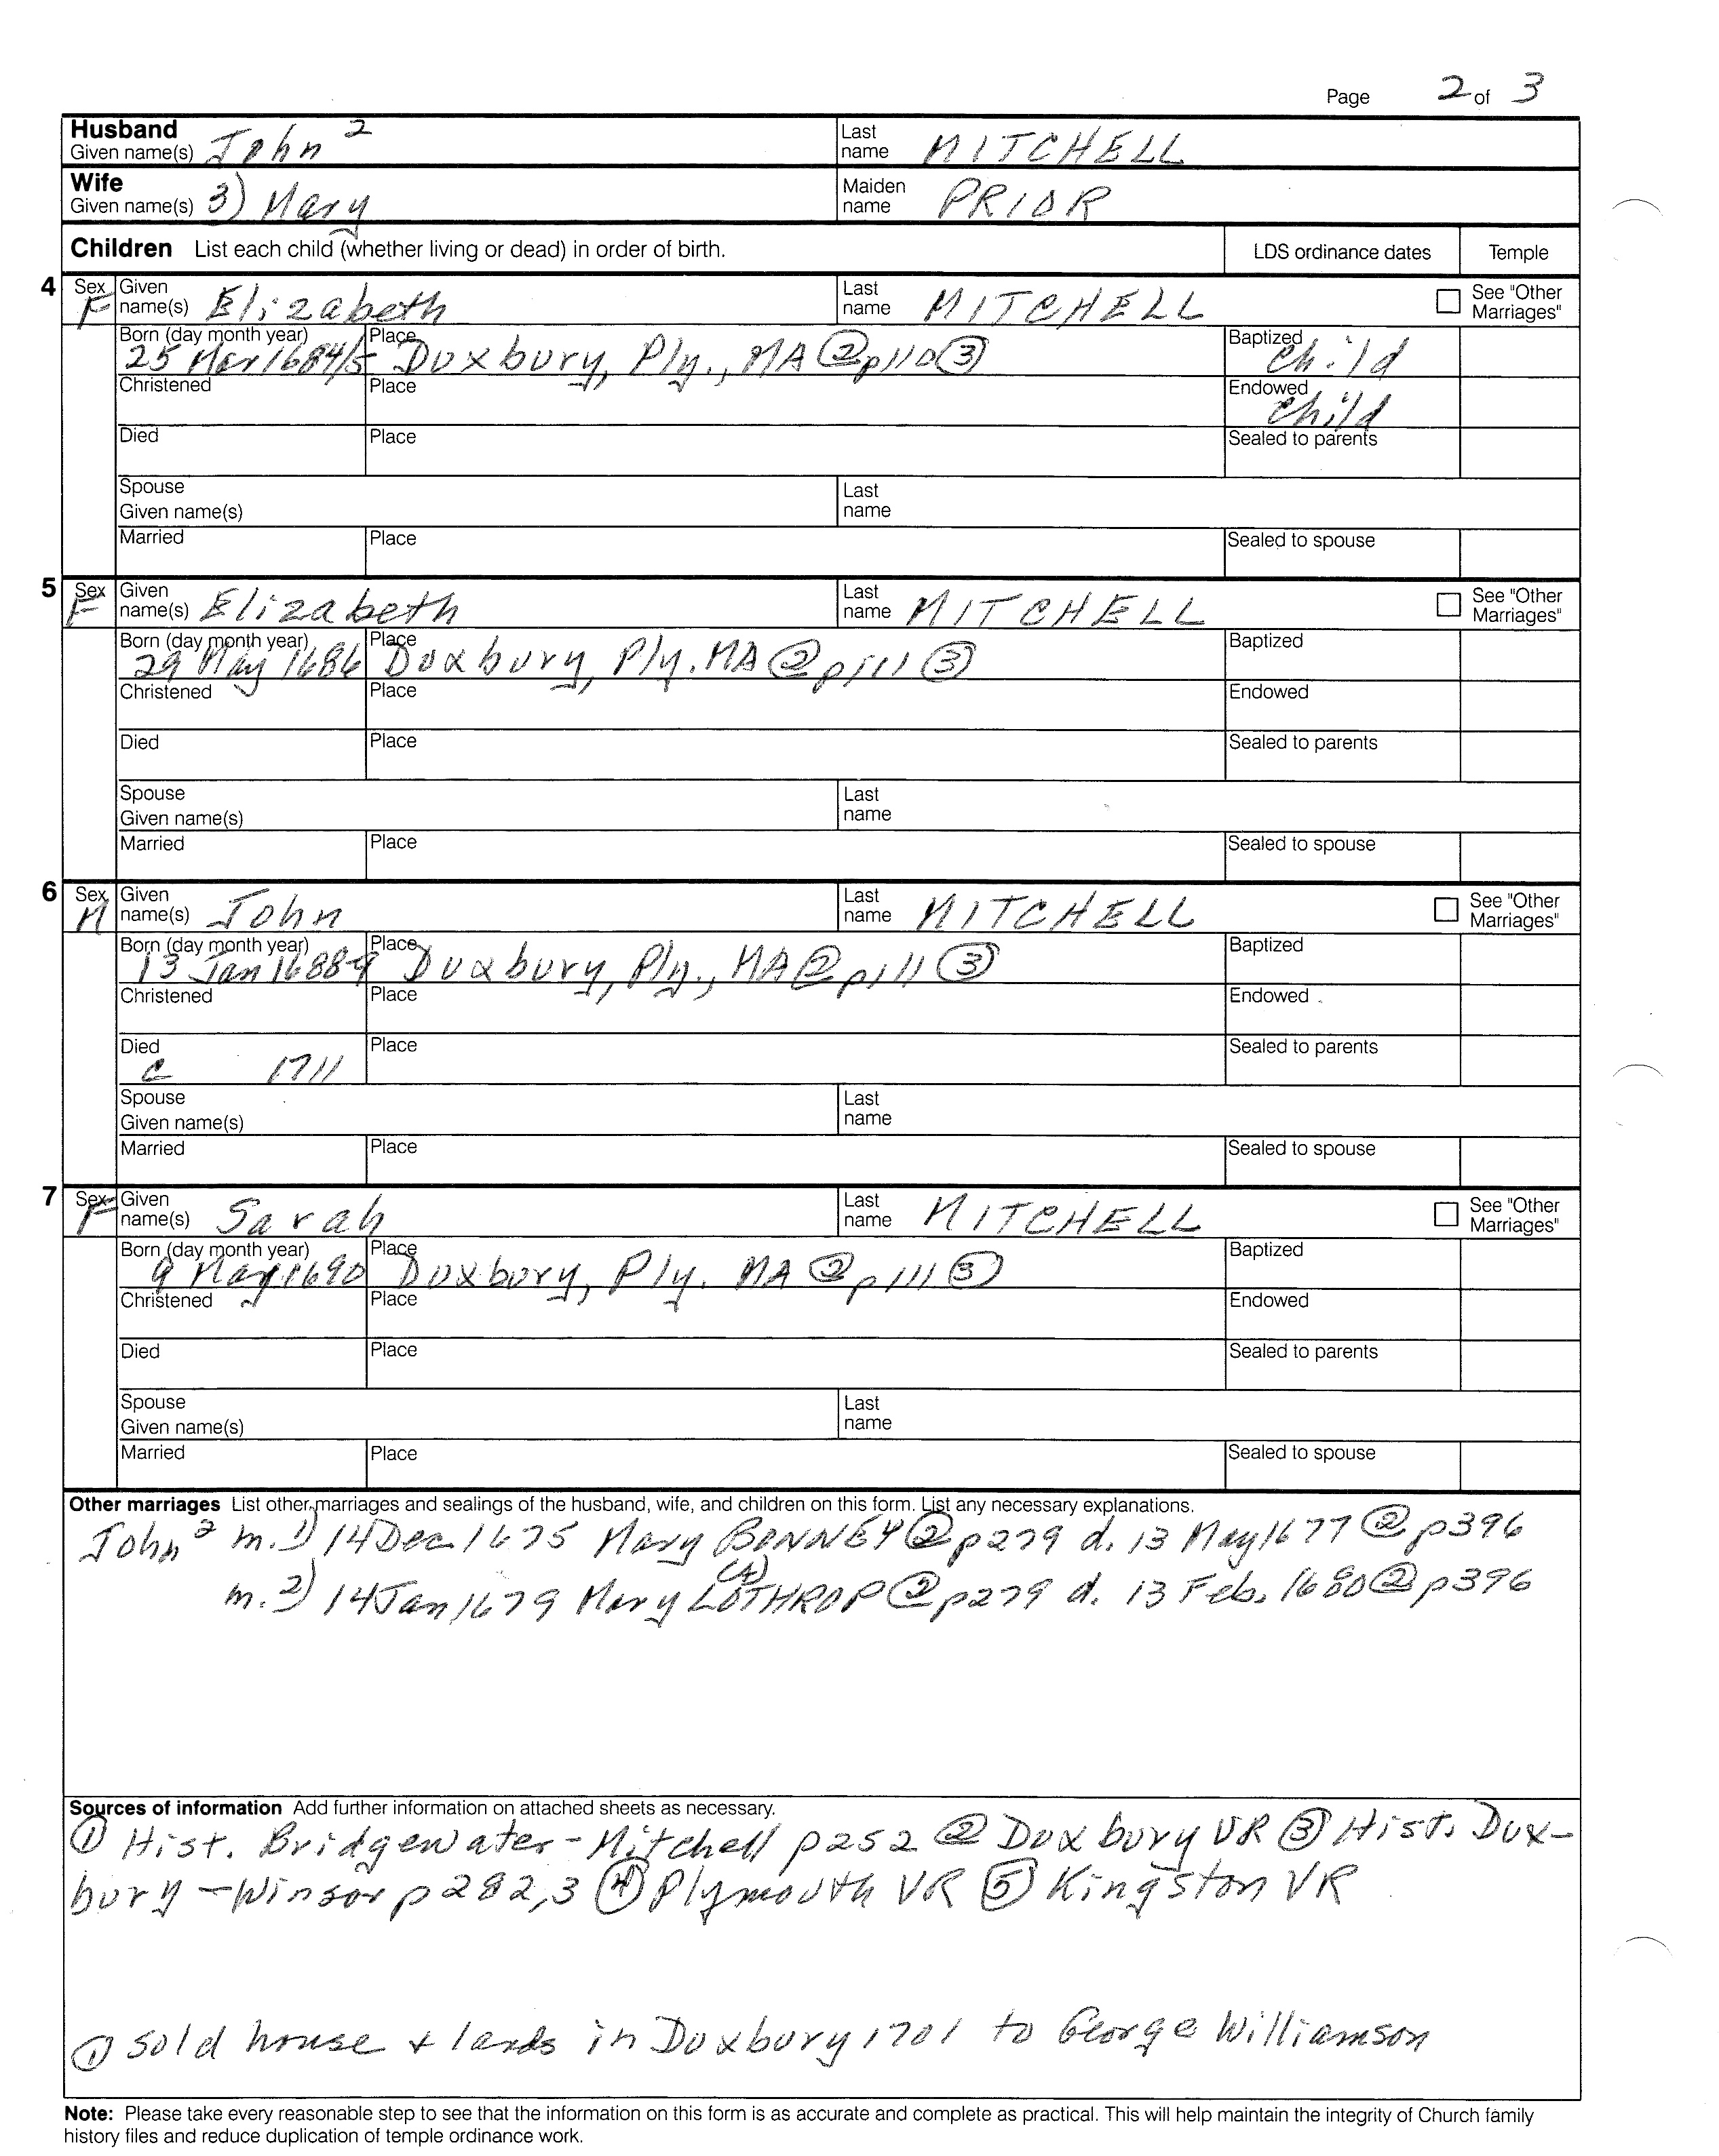 Page 2 of 3
Husband Given name(s) John 2 Last name MITCHELL
Wife Given name(s) 3) Mary Maiden name PRIOR
Children List each child (whether living or dead) in order of birth. LDS ordinance dates Temple
4 Sex F Given name(s) Elizabeth Last name MITCHELL See "Other Marriages"
Born (day month year) 25 Mar 1684/5 Place Duxbury, Ply., MA ② p110 ③ Baptized Child
Christened Place Endowed Child
Died Place Sealed to parents
Spouse Given name(s) Last name
Married Place Sealed to spouse
5 Sex F Given name(s) Elizabeth Last name MITCHELL See "Other Marriages"
Born (day month year) 29 May 1686 Place Duxbury, Ply. MA ② p111 ③ Baptized
Christened Place Endowed
Died Place Sealed to parents
Spouse Given name(s) Last name
Married Place Sealed to spouse
6 Sex M Given name(s) John Last name MITCHELL See "Other Marriages"
Born (day month year) 13 Jan 1688-9 Place Duxbury, Ply., MA ② p111 ③ Baptized
Christened Place Endowed
Died c 1711 Place Sealed to parents
Spouse Given name(s) Last name
Married Place Sealed to spouse
7 Sex F Given name(s) Sarah Last name MITCHELL See "Other Marriages"
Born (day month year) 9 May 1690 Place Duxbury, Ply. MA ② p111 ③ Baptized
Christened Place Endowed
Died Place Sealed to parents
Spouse Given name(s) Last name
Married Place Sealed to spouse
Other marriages List other marriages and sealings of the husband, wife, and children on this form. List any necessary explanations.
John 2 m. 1) 14 Dec. 1675 Mary BONNEY ② p279 d. 13 May 1677 ② p396
(A)
m. 2) 14 Jan 1679 Mary LOTHROP ② p279 d. 13 Feb. 1680 ② p396
Sources of information Add further information on attached sheets as necessary.
① Hist. Bridgewater - Mitchell p252 ② Duxbury VR ③ Hist. Dux-
bury - Winsor p 282,3 ④ Plymouth VR ⑤ Kingston VR
① sold house + lands in Duxbury 1701 to George Williamson
Note: Please take every reasonable step to see that the information on this form is as accurate and complete as practical. This will help maintain the integrity of Church family
history files and reduce duplication of temple ordinance work.